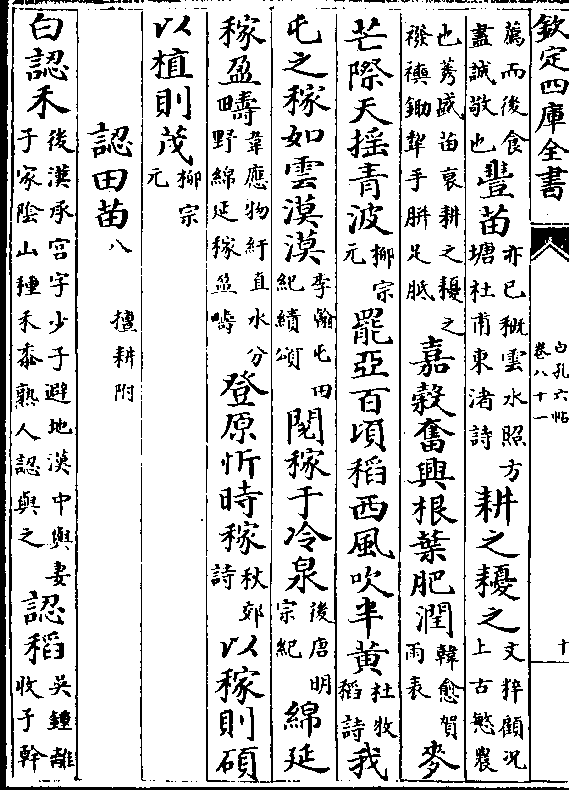 欽定四庫全書
白孔六帖
卷八十一
十
薦而後食
盡誠敬也
豐苗
亦已穊雲水照方
塘杜甫東渚詩
耕之耰之
文粹顧况
上古愍農
也莠盛苗衰耕之耰之
襏襫鋤犂手胼足胝
嘉穀奮興根葉肥潤
韓愈賀
雨表
麥
芒際天摇青波
柳宗
元
罷亞百頃稻西風吹半黄
杜牧
稻詩
我
屯之稼如雲漠漠
李翰屯田
紀績頌
閱稼于冷泉
後唐明
宗紀
綿延
稼盈疇
韋應物紆直水分
野綿延稼盈疇
登原忻時稼
秋郊
詩
以稼則碩
以植則茂
柳宗
元
認田苗八
擅耕附
白認禾
後漢承宫字少子避地漢中與妻
子家陰山種禾黍熟人認與之
認稻
吳鍾離
收于幹